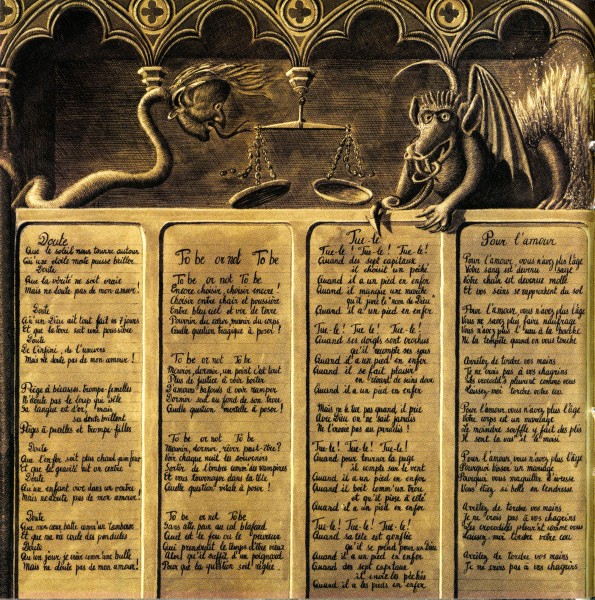 Doute
Que le soleil nous tourne autour
Qu'une étoile morte puisse briller
Doute
Que la vérité ne soit vraie
Mais ne doute pas de mon amour!
Doute
Qu'un Dieu ait tout fait en 7 jours
Et que la terre soit une poussière
Doute
De l'infini, de l'univers
Mais ne doute pas de mon amour!
Piège à bécasses, trompe-femelles
N'écoute pas le loup qui bêle
Sa langue est d'or, mais
ses dents brillent
Pièges à pucelles et trompe-filles
Doute
Que l'enfer soit plus chaud qu'un four
Et que la gravité ait un centre
Doute
Qu'un enfant vive dans son ventre
Mais ne doute pas de mon amour!
Doute
Que mon cœur batte comme un tambour
Et que ma vie coule des pendules
Doute
Qu'un jour, je crève comme une bulle
Mais ne doute pas de mon amour!
To be or not To be
To be or not To be
Encore choisir, choisir encore!
Choisir entre chair et poussière
Entre bleu ciel et ver de terre
Pourrir du cœur, mourir du corps
Quelle question tragique à poser!
To be or not To be
Mourir, dormir, un point c'est tout
Plus de justice à voir boiter
D'amours bafouées à voir ramper
Dormir seul au fond de son trou
Quelle question mortelle à poser!
To be or not To be
Mourir, dormir, rêver peut-être?
Voir chaque nuit les souvenirs
Sortir de l'ombre comme des vampires
Et vous tournoyer dans la tête
Quelle question vitale à poser!
To be or not To be
Sans cette peur au col blafard
Quel est le fou ou le peureux
Qui prendrait le temps d'être vieux
Alors qu'il suffit d'un poignard
Pour que la question soit réglée.
Tue-le
Tue-le! Tue-le! Tue-le!
Quand des sept capitaux
il choisit un péché
Quand il a un pied en enfer
Quand il mangue une moitié
qu'il jure le nom de Dieu
Quand il a un pied en enfer
Tue-le! Tue-le! Tue-le!
Quand ses doigts sont crochus
qu'il recompte ses sous
Quand il a un pied en enfer
Quand il se fait pleurer
en rêvant de seins doux
Quand il a un pied en enfer
Mais ne le tue pas quand il prie
Avec Dieu on ne sait jamais
Ne l'envoie pas au paradis!
Tue-le! Tue-le! Tue-le!
Quand pour tourner la page
il compte sur le vent
Quand il a un pied en enfer
Quand il boit comme un trou
et qu'il pisse à côté
Quand il a un pied en enfer
Tue-le! Tue-le! Tue-le!
Quand sa tête est gonflée
qu'il se prend pour un Dieu
Quand il a un pied en enfer
Quand des sept capitaux
il envie les péchés
Quand il a les pieds en enfer
Pour l'amour
Pour l'amour, vous n'avez plus l'âge
Votre sang est devenu sage
Votre chair est devenue molle
Et vos seins se rapprochent du sol
Pour l'amour, vous n'avez plus l'âge
Vous ne savez plus faire naufrage
Vous n'avez plus l'eau à la bouche
Ni la tempête quand on vous touche
Arrêtez de tordre vos mains
Je ne crois pas à vos chagrins
Les crocodiles pleurent comme vous
Laissez-moi tordre votre cou
Pour l'amour vous n'avez plus l'âge
Votre corps est un marécage
Le moindre souffle y fait des plis
Pour l'amour vous n'avez plus l'âge
Pourquoi visser un maquillage
Pourquoi vous maquiller d'ivresse
Vous étiez si belle en tendresse
Arrêtez de tordre vos mains
Je ne crois pas à vos chagrins
Les crocodiles pleurent comme vous
Laissez-moi tordre votre cou
Arrêtez de tordre vos mains
Je ne crois pas à vos chagrins